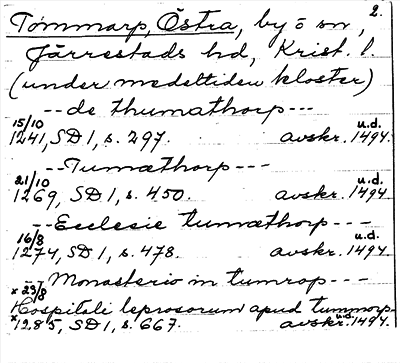 2.
Tommarp, Östra, by o sn,
Järrestads hd, Krist. l.
(under medeltiden kloster)
-- de thumathorp ---
15/10 u.d.
1241, SD 1, s. 297. avskr. 1494.
-- Tumæthorp ---
21/10 u.d.
1269, SD 1, s. 450. avskr. 1494
-- Ecclesie tumæthorp ---
16/8 u.d.
1274, SD 1, s. 478. avskr. 1494.
-- Monasterio in tumrop ---
x 23/8
Hospitali leprosorum apud tummorp-
x 1285, SD 1, s. 667. u.d. avskr. 1494.